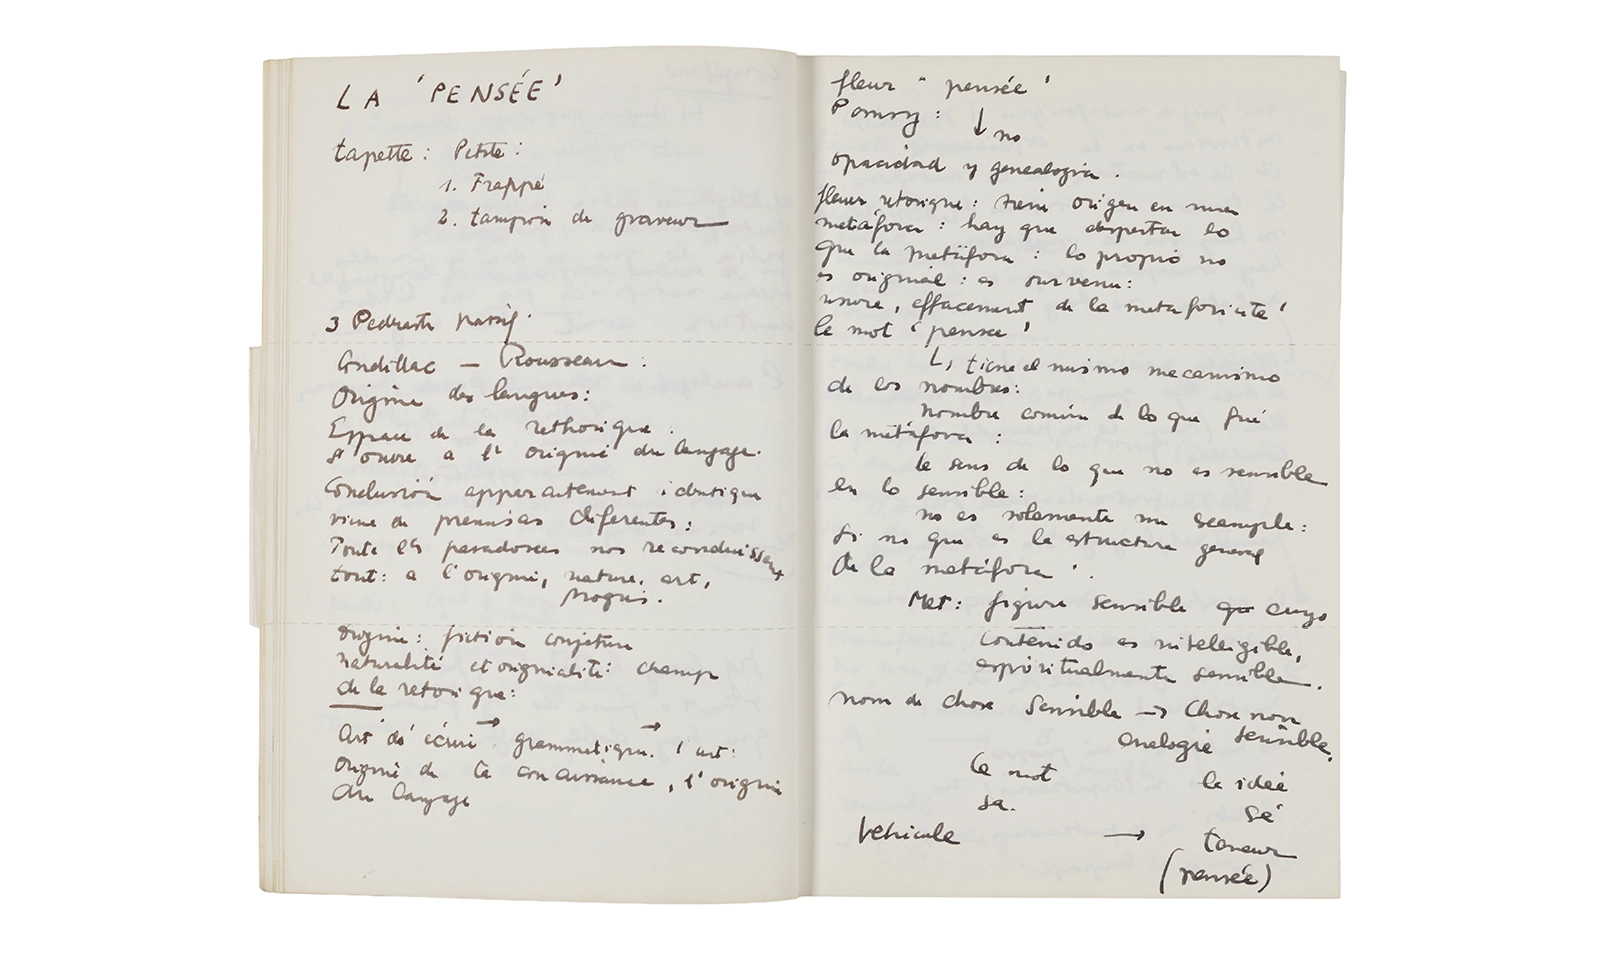 LA 'PENSÉE'
tapette : Petite :
1. Frappe
2. tampon de graveur
3 Pederaste passif.
Condillac — Rousseau :
Origine des langues :
Espace de la rethorique :
s'ouvre a l'origine du langage.
Conclusión appartenant identique
vient de premisas diferentes :
Toute les paradoxes nos reconduissent
tout : a l'origine, nature, art,
progres.
origine : fiction conjeture
naturalité et originalité : champ
de la retorique :
Art d'écrire → grammatique → l'art :
origine de la connaissance, l'origine
du langage
fleur " pensée '
↓ no
opacidad y genealogia .
fleur retorique : tiene origen en una
metáfora : hay que despertar lo
que la metáfora : lo propio no
es original : es survenu :
usure, effacement de la metaforicité '
le mot 'pensee'
↳ tiene el mismo mecanismo
de los nombres :
nombre común de lo que fué
la metáfora :
le sens de lo que no es sensible
en lo sensible :
no es solamente un exemple :
si no que es la estructura general
de la metáfora '.
Met : figura sensible cuyo
contenido es inteligible,
espiritualmente sensible.
nom de chose sensible → Chose non
analogie sensible.
le mot la idée
sa. sé
Vehicule → teneur
(pensée)